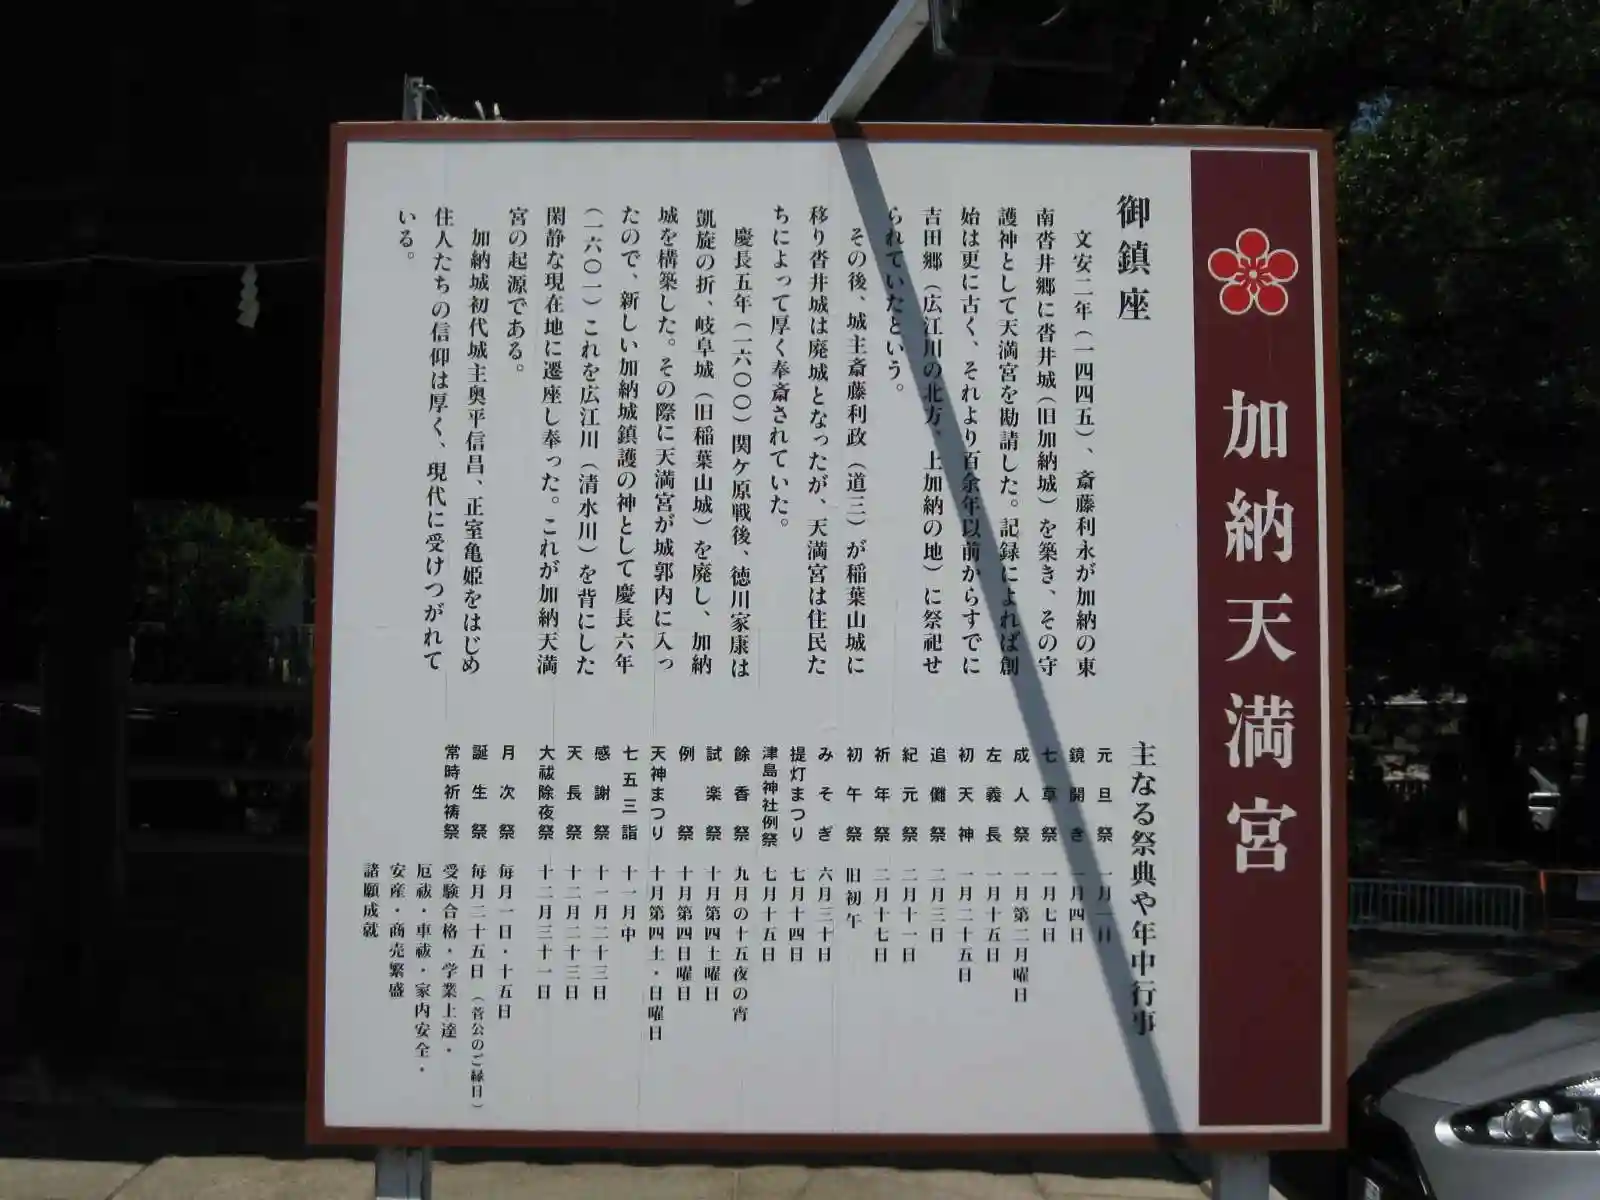 加納天満宮
御鎮座
文安二年(一四四五)、斎藤利永が加納の東
南沓井郷に沓井城(旧加納城)を築き、その守
護神として天満宮を勘請した。記録によれば創
始は更に古く、それより百余年以前からすでに
吉田郷(広江川の北方、上加納の地)に祭祀せ
られていたという。
その後、城主斎藤利政(道三)が稲葉山城に
移り沓井城は廃城となったが、天満宮は住民た
ちによって厚く奉斎されていた。
慶長五年(一六〇〇)関ケ原戦後、徳川家康は
凱旋の折、岐阜城(旧稲葉山城)を廃し、加納
城を構築した。その際に天満宮が城郭内に入っ
たので、新しい加納城鎮護の神として慶長六年
(一六〇一)これを広江川(清水川)を背にした
閑静な現在地に遷座し奉った。これが加納天満
宮の起源である。
加納城初代城主奥平信昌、正室亀姫をはじめ
住人たちの信仰は厚く、現代に受けつがれて
いる。
主なる祭典や年中行事
元旦祭 一月一日
鏡開き 一月四日
七草祭 一月七日
成人祭 一月第二月曜日
左義長 一月十五日
初天神 一月二十五日
追儺祭 二月三日
紀元祭 二月十一日
祈年祭 二月十七日
初午祭 旧初午
みそぎ 六月三十日
提灯まつり 七月十四日
津島神社例祭 七月十五日
餘香祭 九月の十五夜の宵
試楽祭 十月第四土曜日
例祭 十月第四日曜日
天神まつり 十月第四土・日曜日
七五三詣 十一月中
感謝祭 十一月二十三日
天長祭 十二月二十三日
大祓除夜祭 十二月三十一日
月次祭 毎月一日・十五日
誕生祭 毎月二十五日(菅公のご縁日)
常時祈祷祭 受験合格・学業上達・
厄祓・車祓・家内安全・
安産・商売繁盛
諸願成就